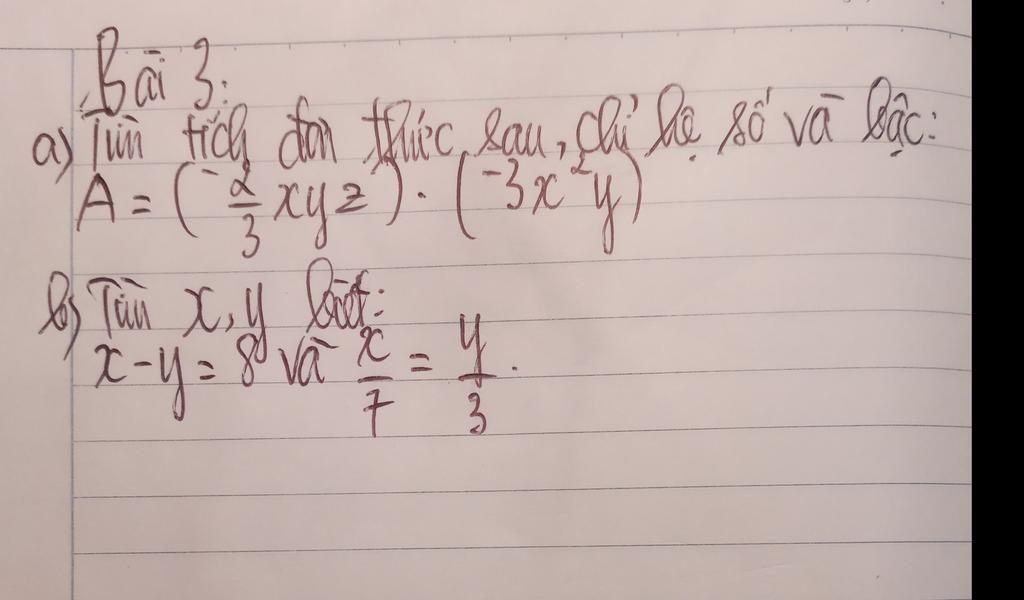 Bài 3:
a) Tìm tích đơn thức sau, chỉ hệ số và bậc:
A = (-2/3 xyz) · (-3x²y)
b) Tìm x, y biết:
x - y = 8 và x/7 = y/3.